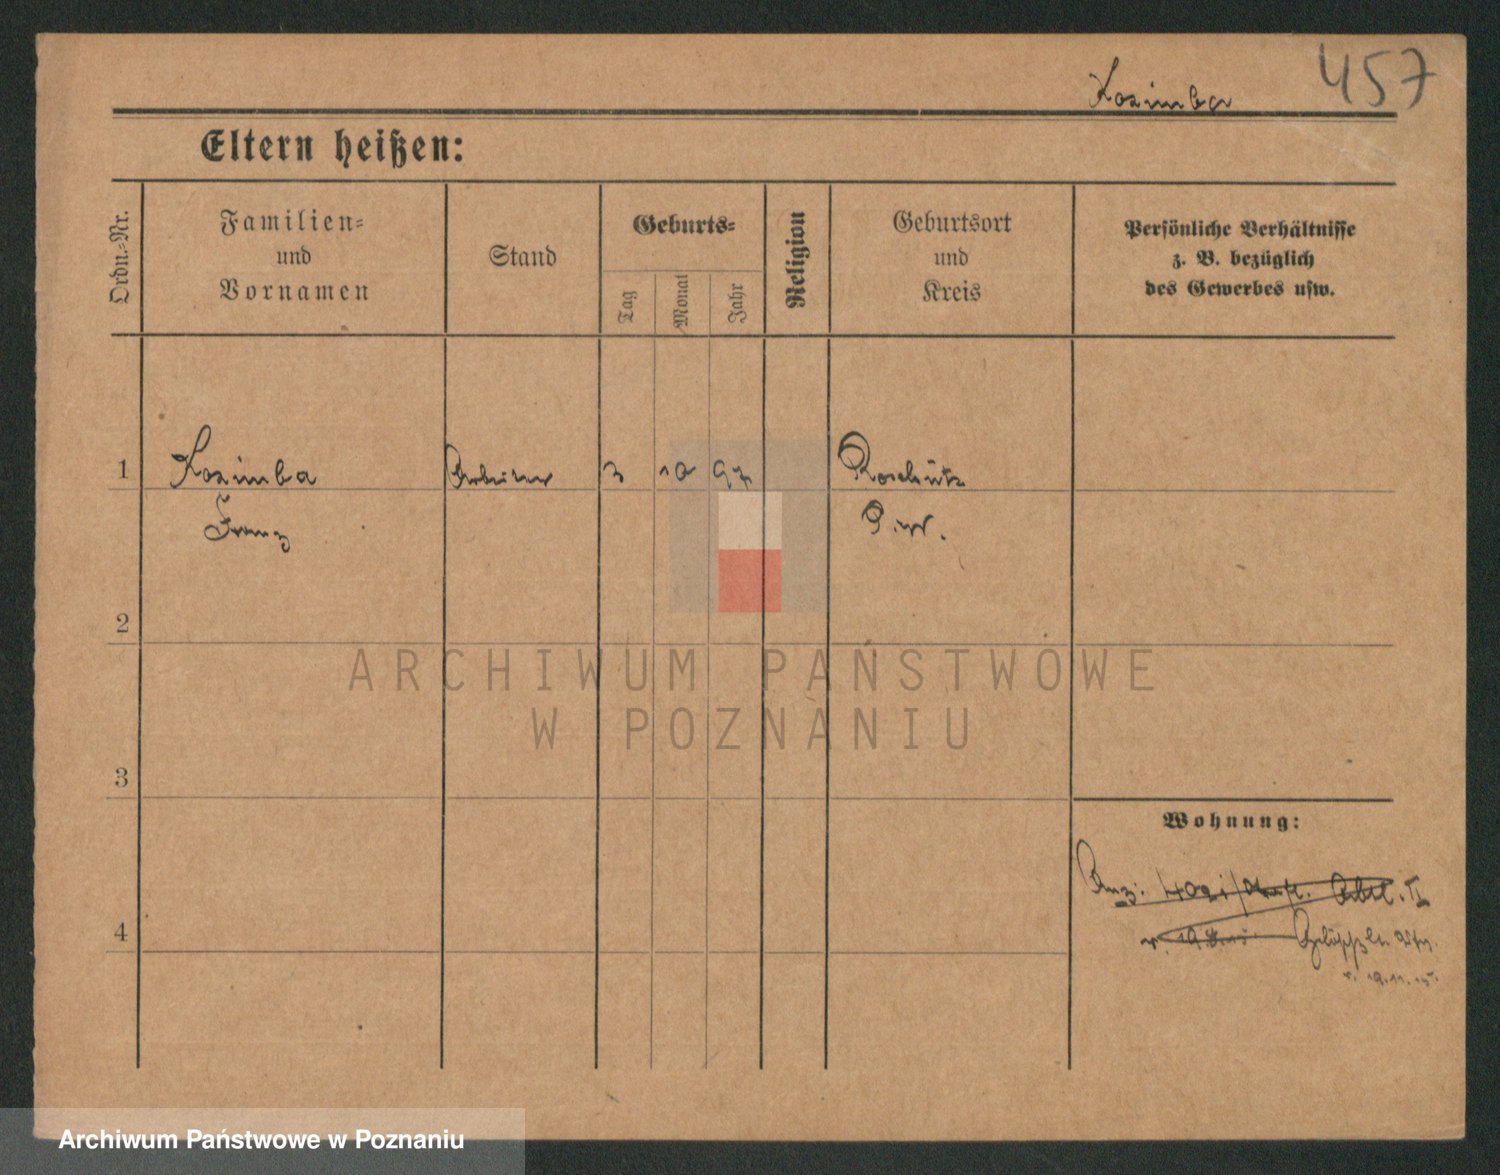 457
Kozimba
Eltern heißen:
Ordn.=Nr.
Familien=
und
Vornamen
Stand
Geburts=
Tag
Monat
Jahr
Religion
Geburtsort
und
Kreis
Persönliche Verhältnisse
z. B. bezüglich
des Gewerbes usw.
1 Kozimba Arbeiter 3 10 97 Roschütz
Franz P.W.
2
ARCHIWUM PAŃSTWOWE
W POZNANIU
3
Wohnung:
Abtl. II
4
v. 19.11.15.
Archiwum Państwowe w Poznaniu